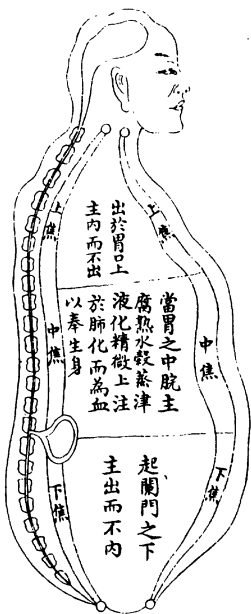 上焦
出於胃口上
主内而不出
上焦
中焦
當胃之中脘主
腐熟水穀蒸津
液化精微上注
於肺化而為血
以奉生身
中焦
下焦
起闌門之下
主出而不内
下焦